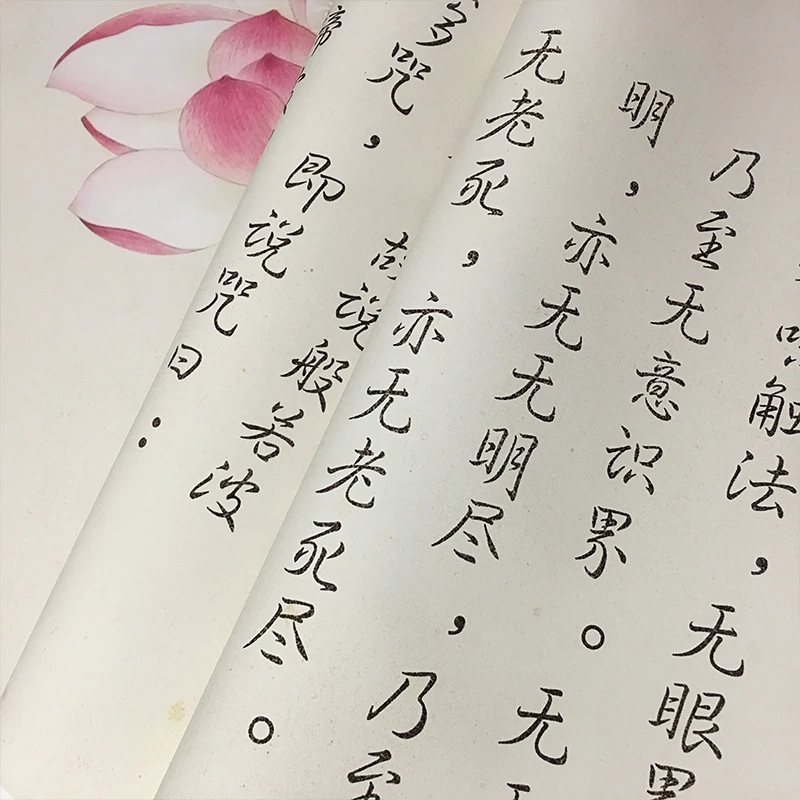 味触法，无眼界
乃至无意识界。无
明，亦无无明尽，乃至
无老死，亦无老死尽。
故说般若波
多咒，即说咒曰：